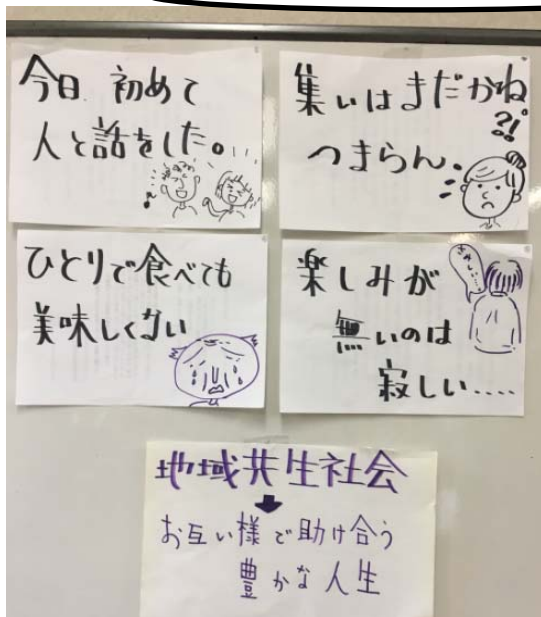 今日、初めて
人と話をした。...
集いはまだかね
?!
つまらん.
ひとりで食べても
美味しくない
楽しみが
無いのは
寂しい.....
地域共生社会
お互い様で助け合う
豊かな人生